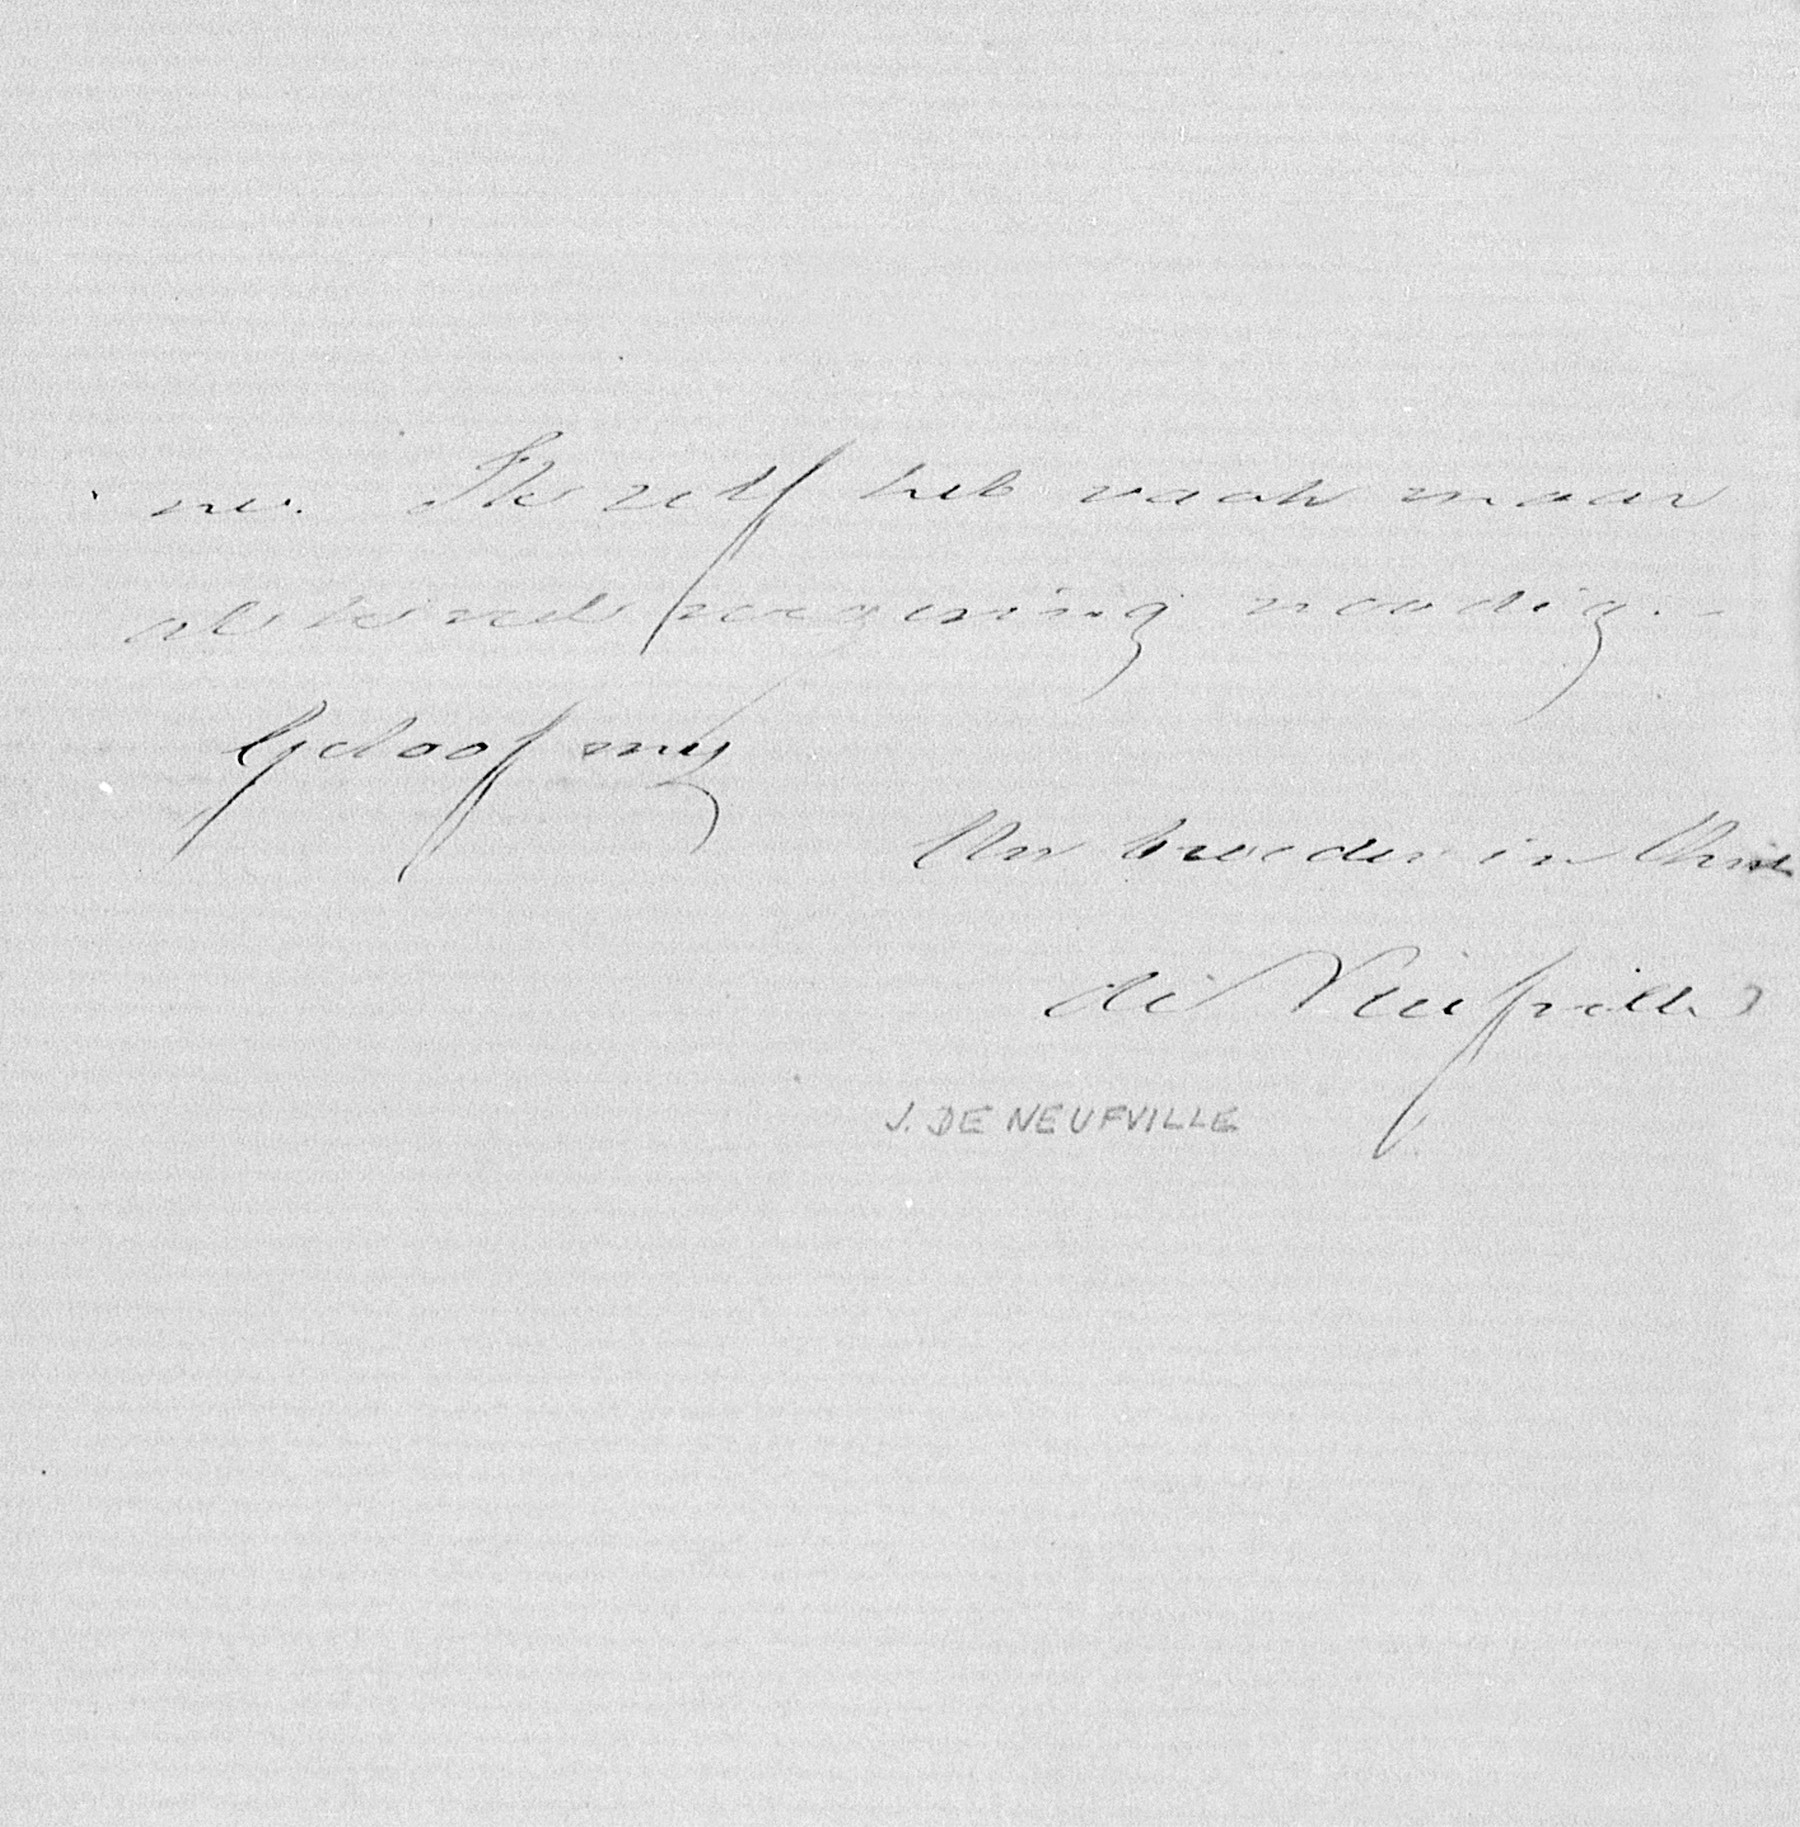 nu. Ik zelf heb vaak maar
al te veel vergeving noodig. -
Geloof mij
Uw broeder in Christ
de Neufville
J. DE NEUFVILLE